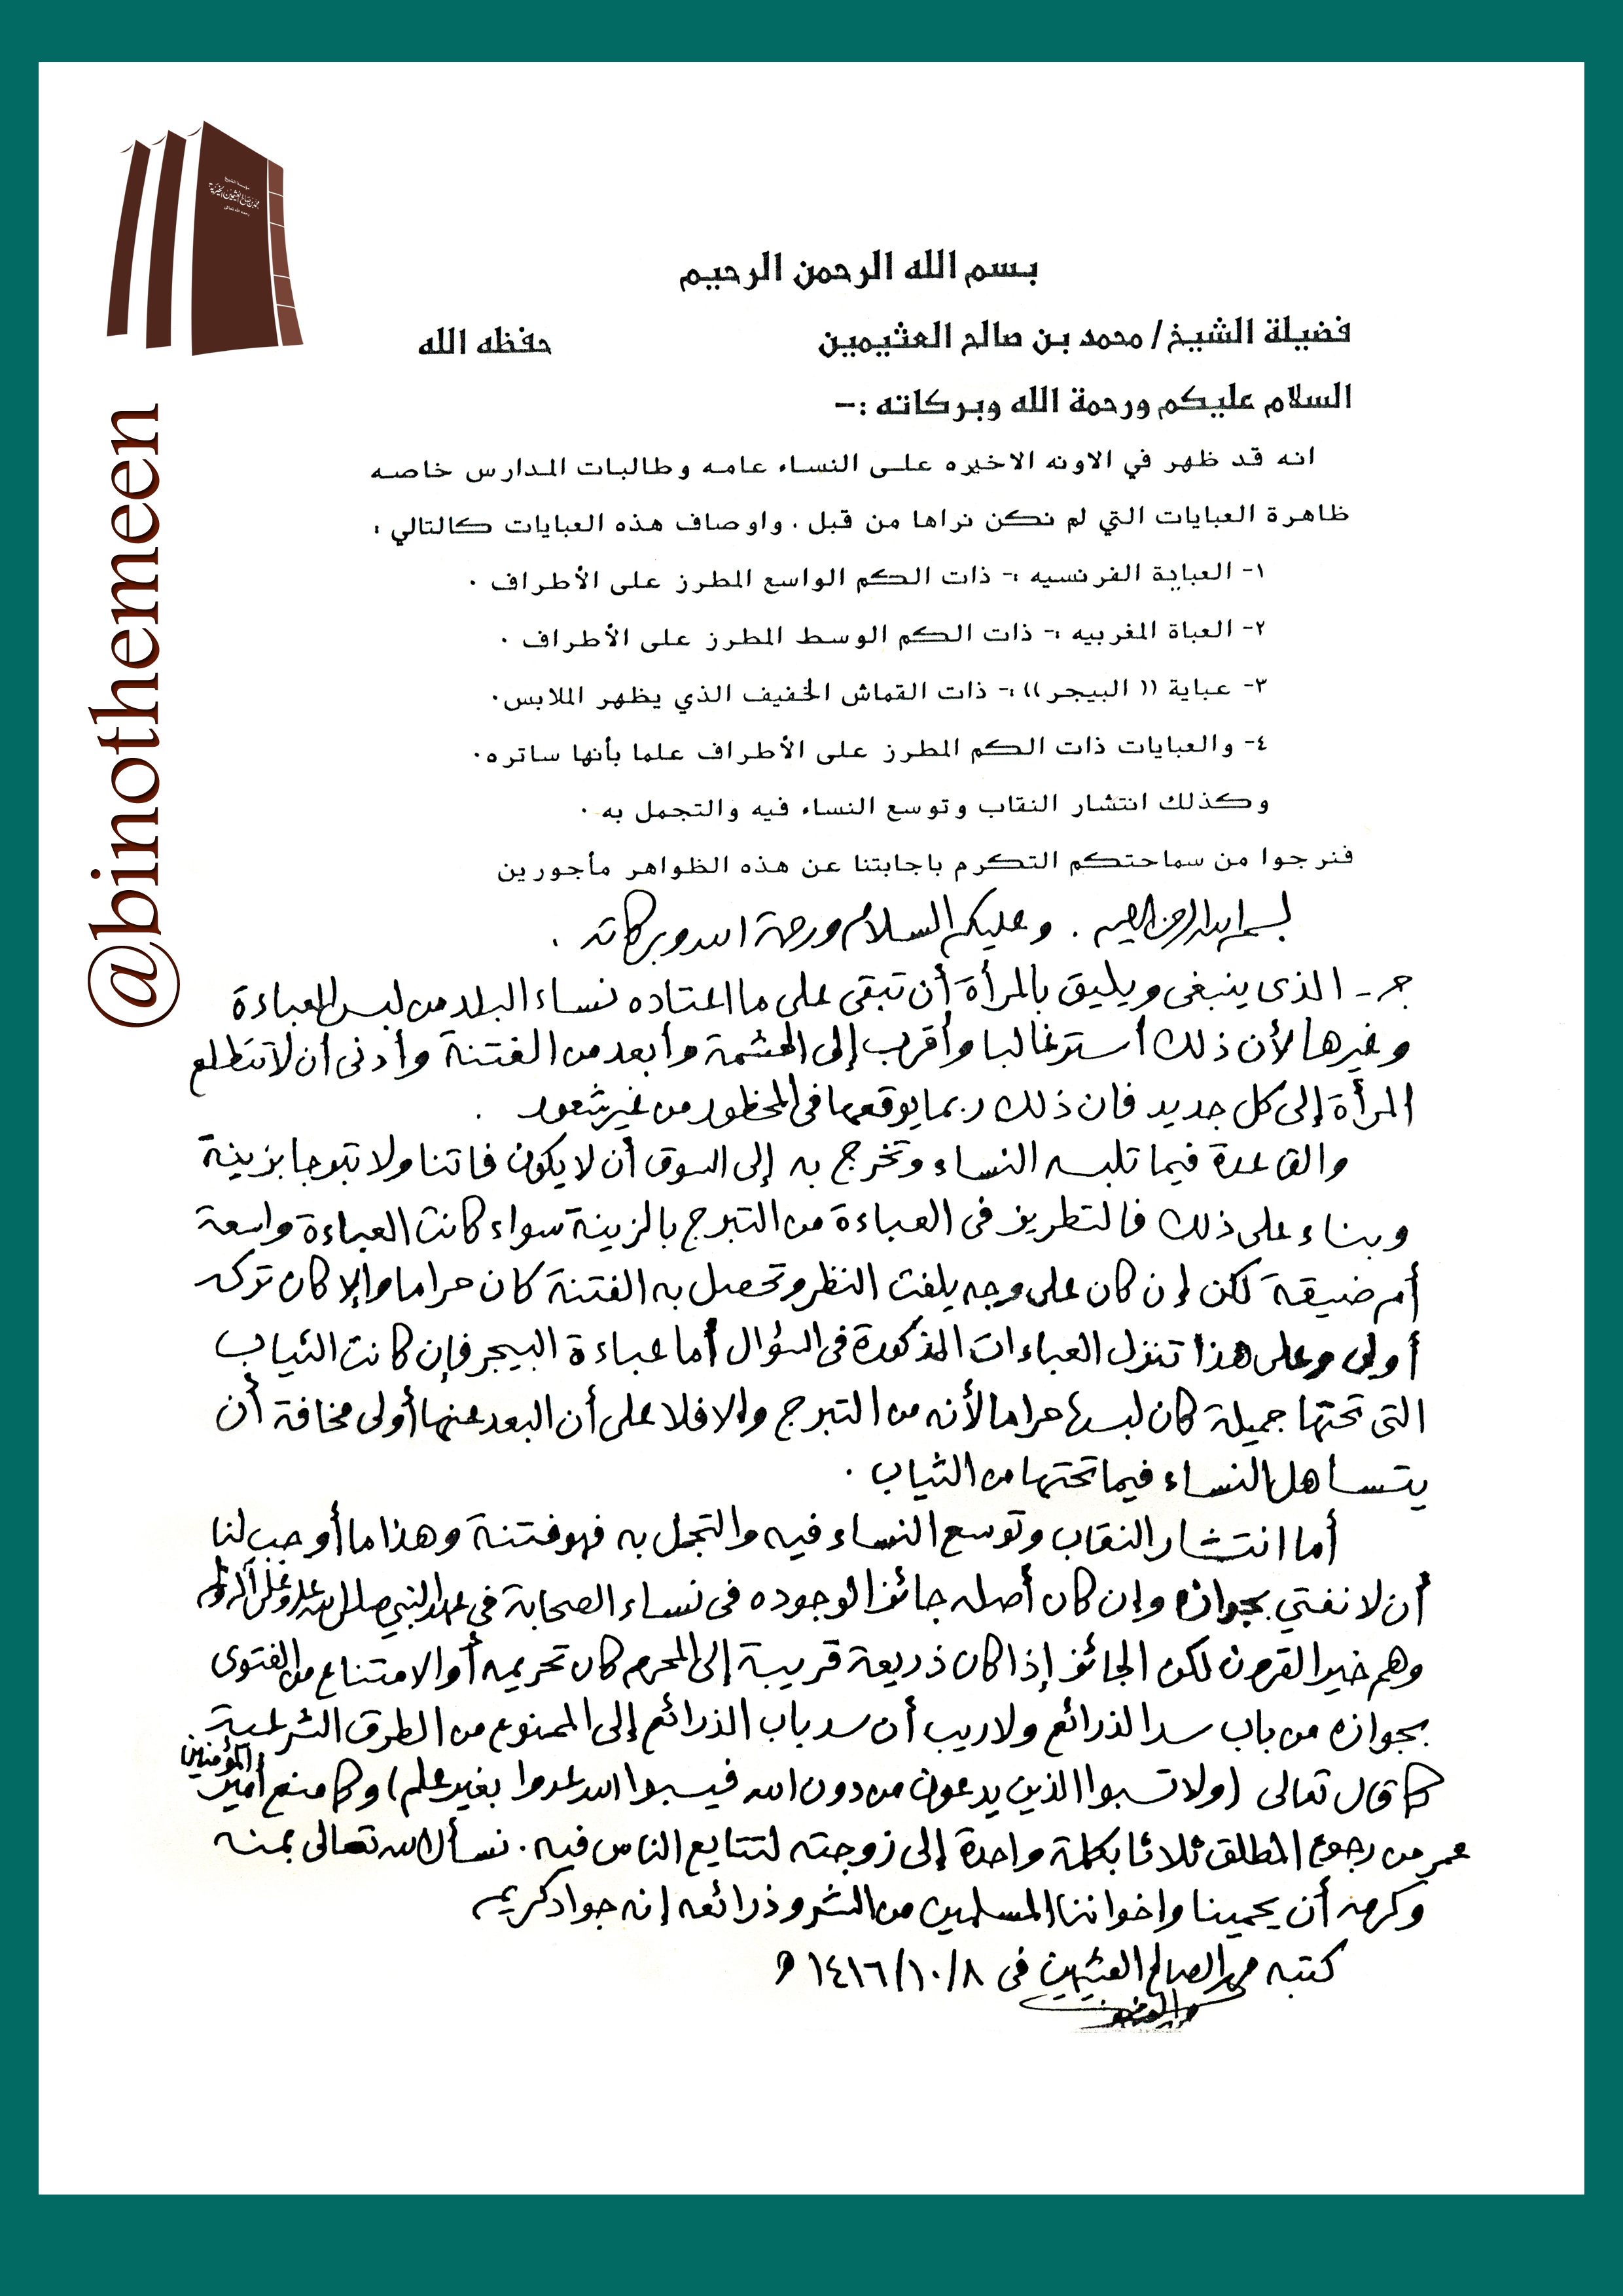 بسم الله الرحمن الرحيم
فضيلة الشيخ / محمد بن صالح العثيمين حفظه الله
السلام عليكم ورحمة الله وبركاته :-
انه قد ظهر في الاونه الاخيره على النساء عامه وطالبات المدارس خاصه
ظاهرة العبايات التي لم نكن نراها من قبل . واوصاف هذه العبايات كالتالي :
١- العباية الفرنسيه :- ذات الكم الواسع المطرز على الأطراف .
٢- العباة المغربيه :- ذات الكم الوسط المطرز على الأطراف .
٣- عباية (( البيجر )) :- ذات القماش الخفيف الذي يظهر الملابس .
٤- والعبايات ذات الكم المطرز على الأطراف علما بأنها ساتره .
وكذلك انتشار النقاب وتوسع النساء فيه والتجمل به .
فنرجوا من سماحتكم التكرم باجابتنا عن هذه الظواهر مأجورين
بسم الله الرحمن الرحيم . وعليكم السلام ورحمة الله وبركاته .
جـ - الذى ينبغى ويليق بالمرأة أن تبقى على ما اعتاده نساء البلد من لبس العباءة
وغيرها لأن ذلك أستر غالبا وأقرب إلى الحشمة وأبعد من الفتنة وأدنى أن لا تتطلع
المرأة إلى كل جديد فان ذلك ربما يوقعها فى المحظور من غير شعور .
والقاعدة فيما تلبسه النساء وتخرج به إلى السوق أن لا يكون فاتنا ولا تبرجا بزينة
وبناء على ذلك فالتطريز فى العباءة من التبرج بالزينة سواء كانت العباءة واسعة
أم ضيقة لكن إن كان على وجه يلفت النظر وتحصل به الفتنة كان حراما وإلا كان تركه
أولى وعلى هذا تنزل العباءات المذكورة فى السؤال أما عباءة البيجر فإن كانت الثياب
التى تحتها جميلة كان لبسها حراما لأنه من التبرج وإلا فلا على أن البعد عنها أولى مخافة أن
يتساهل النساء فيما تحتها من الثياب .
أما انتشار النقاب وتوسع النساء فيه والتجمل به فهو فتنة وهذا ما أوجب لنا
أن لا نفتي بجوازه وإن كان أصله جائزا لوجوده فى نساء الصحابة في عهد النبي صلى الله عليه وعلى آله وسلم
وهم خير القرون لكن الجائز إذا كان ذريعة قريبة إلى المحرم كان تحريمه أو الامتناع من الفتوى
بجوازه من باب سد الذرائع ولا ريب أن سد باب الذرائع إلى الممنوع من الطرق الشرعية
كما قال تعالى (ولا تسبوا الذين يدعون من دون الله فيسبوا الله عدوا بغير علم) وكما منع أمير المؤمنين
عمر من رجوع المطلق ثلاثا بكلمة واحدة إلى زوجته لتتايع الناس فيه . نسأل الله تعالى بمنه
وكرمه أن يحمينا واخواننا المسلمين من الشر وذرائعه إنه جواد كريم
كتبه محمد الصالح العثيمين فى ١٤١٦/١٠/٨ هـ
@binothemeen